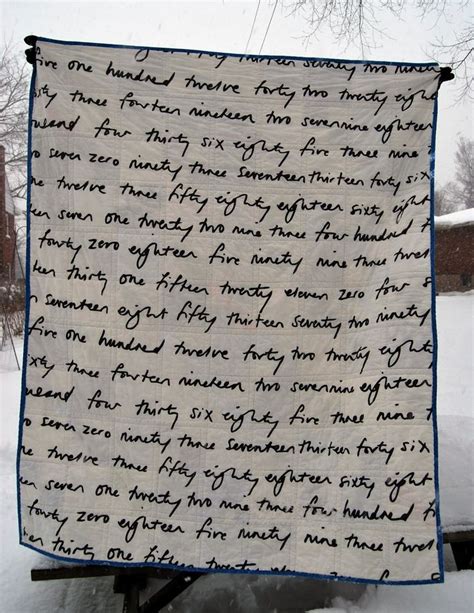 eight fifty thirteen seventy two ninety
five one hundred twelve forty two twenty eight
xty three fourteen nineteen two seven nine eighteen
usand four thirty six eighty five three nine t
o seven zero ninety three seventeen thirteen forty six
ne twelve three fifty eighty eighteen sixty eight
een seven one twenty two nine three four hundred t
forty zero eighteen five ninety nine three twel
een thirty one fifteen twenty eleven zero four
n seventeen eight fifty thirteen seventy two ninety
five one hundred twelve forty two twenty eight
xty three fourteen nineteen two seven nine eighteen
usand four thirty six eighty five three nine t
o seven zero ninety three seventeen thirteen forty six
ne twelve three fifty eighty eighteen sixty eight
en seven one twenty two nine three four hundred t
forty zero eighteen five ninety nine three twel
en thirty one fifteen twenty eleven zero four